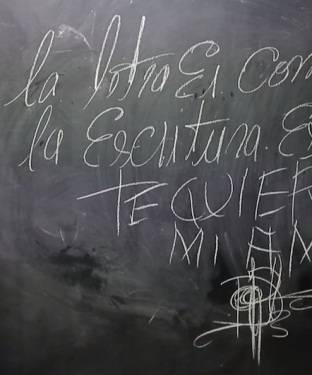 la letra Es con
la Escritura. E
TE QUIER
MI AM